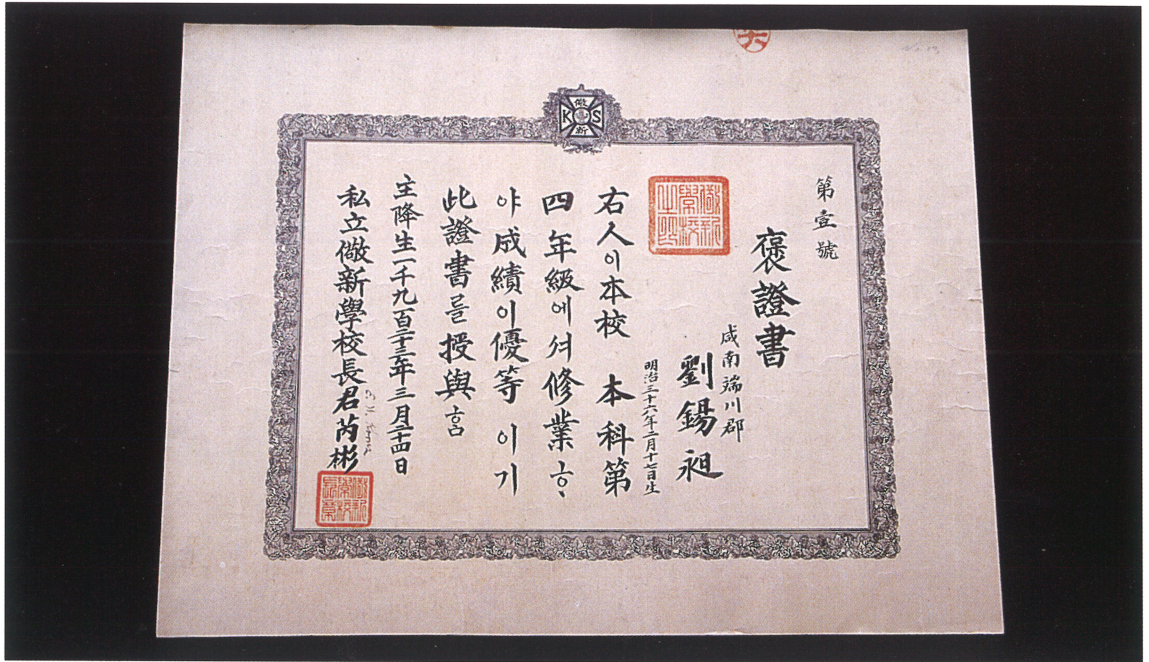 儆
K S
新
第壹號
褒證書
咸南端川郡
劉錫昶
明治三十六年二月十七日生
儆新學校之印
右人이本校 本科第
四年級에셔修業ᄒᆞ
야成績이優等 이기
此證書를授與홈
主降生一千九百二十三年三月二十四日
私立儆新學校長君芮彬